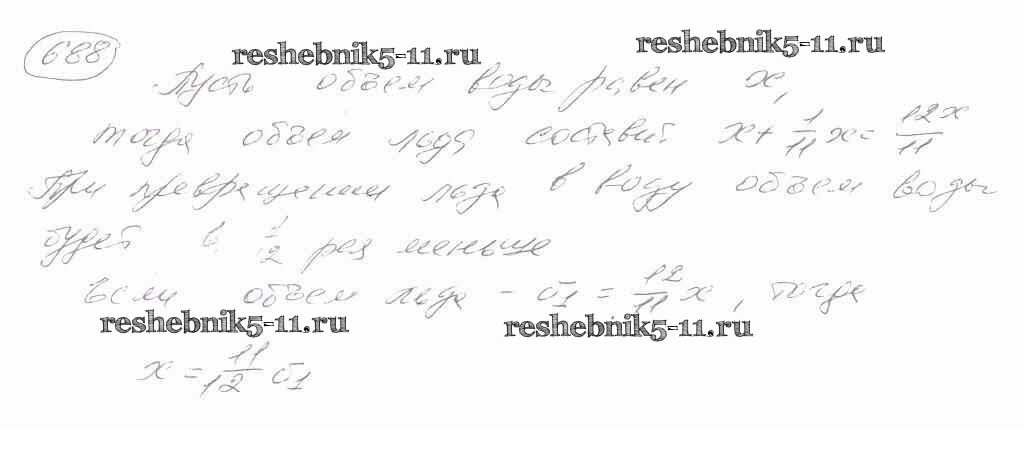 688 reshebnik5-11.ru reshebnik5-11.ru
Пусть объем воды равен x,
тогда объем льда составит x + 1/11 x = 12x/11
При превращении льда в воду объем воды
будет в 1/12 раз меньше
Если объем льда - V1 = 12/11 x, тогда
reshebnik5-11.ru reshebnik5-11.ru
x = 11/12 V1